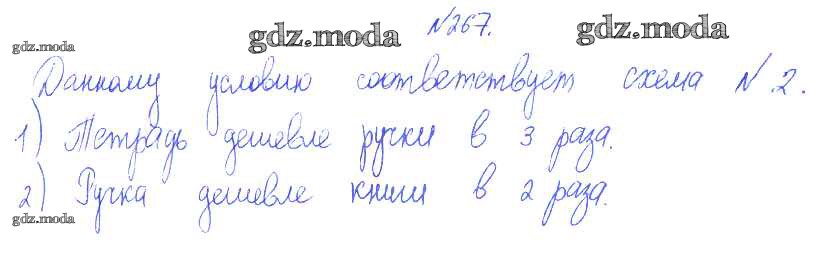 gdz.moda
gdz.moda
gdz.moda
№267.
Данному условию соответствует схема №2.
1) Тетрадь дешевле ручки в 3 раза.
2) Ручка дешевле книги в 2 раза.
gdz.moda